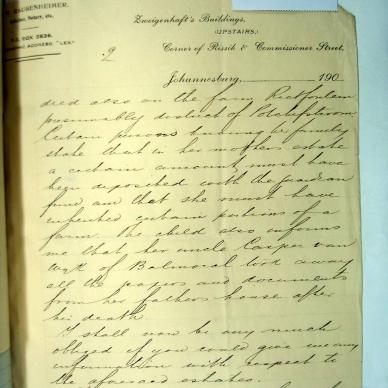 RAUBENHEIMER.
Solicitor, Notary, etc.
P.O. BOX 2634.
ADDRESS, "LEX."
Zweigenhaft's Buildings,
(UPSTAIRS)
Corner of Rissik & Commissioner Street,
2
Johannesburg, 190
died also on the farm Rietfontein
presumably district of Potchefstroom.
Certain persons knowing the family
state that in her mothers estate
a certain amount must have
been deposited with the guardian
fund and that she must have
inherited certain portions of a
farm. The child also informs
me that her uncle Casper van
Wyk of Balmoral took away
all the papers and documents
from her fathers house after
his death.
I shall now be very much
obliged if you could give me any
information with respect to
the aforesaid estates.